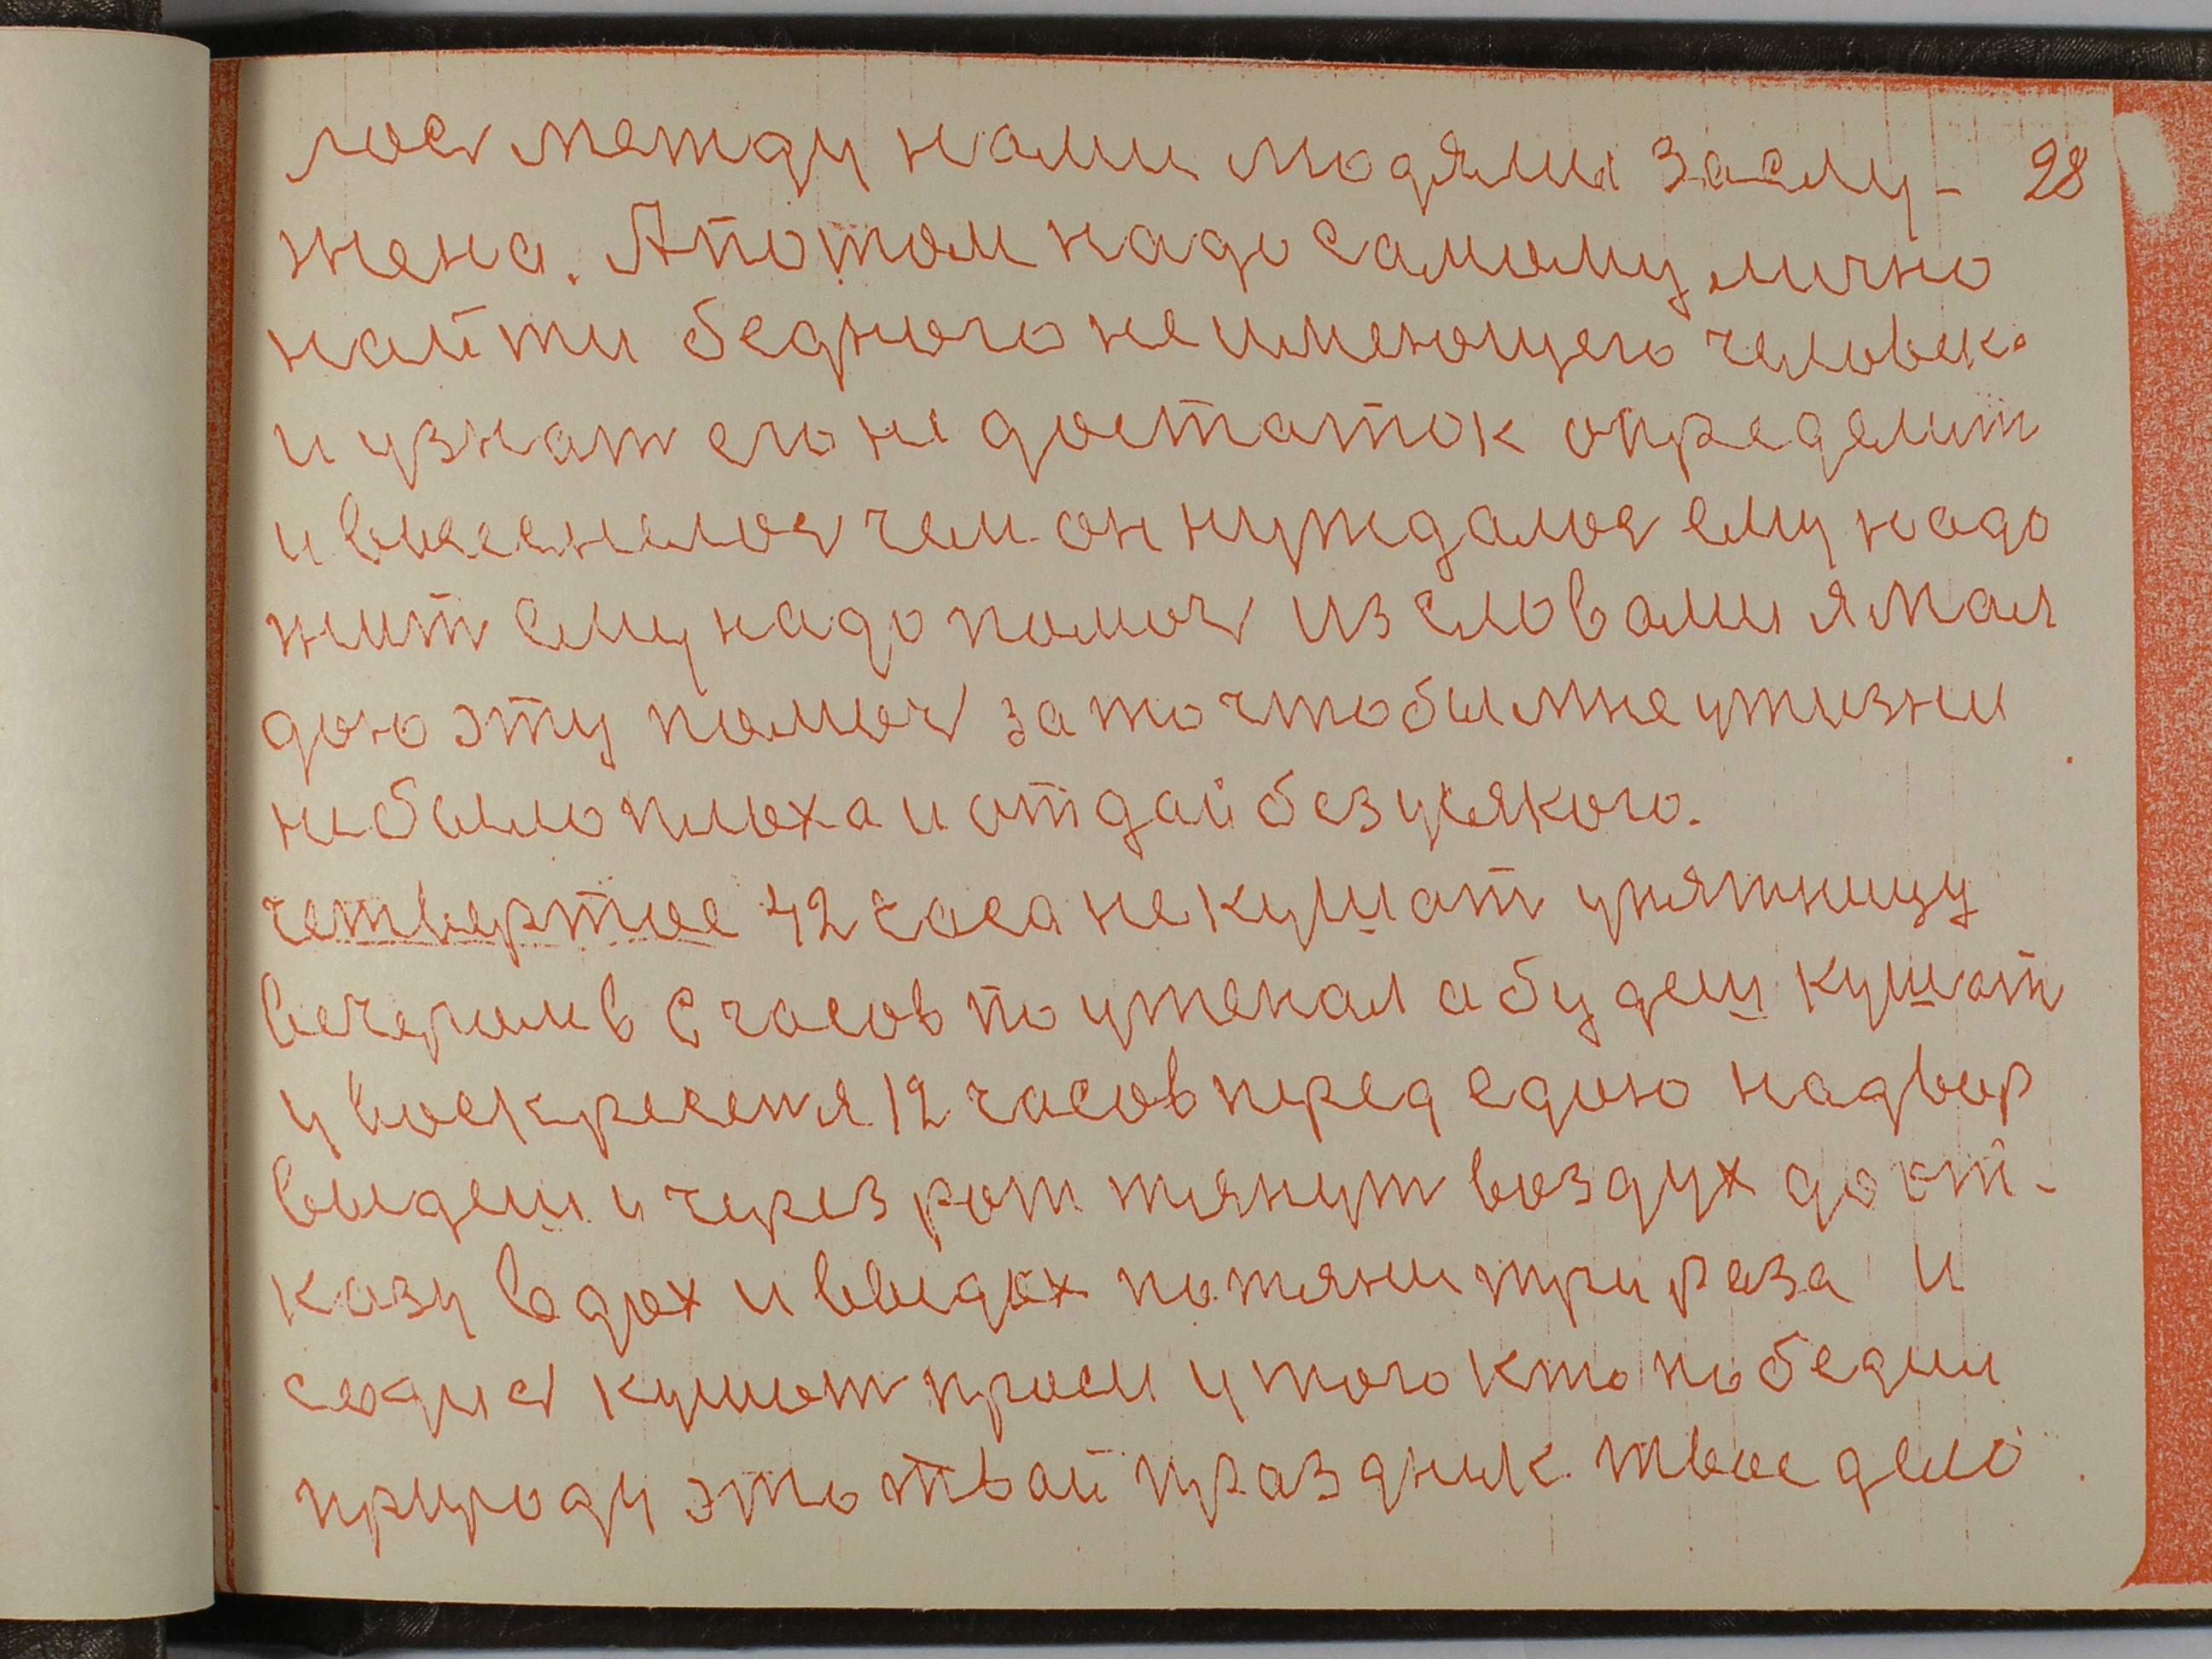 лось между нами людями заслу- 28
жена. А потом надо самому лично
найти бедного не имеющего человека
и узнат его не достаток определит
и выесенелось чем он нуждалось ему надо
жит ему надо помочь из словами я мал
даю эту помочь за то чтобы мне у жизни
не было плоха и отдай без усякого.
четвертое 42 часа не кушат у пятницу
вечером в 6 часов по ужекал а будеш кушат
у воскресеня 12 часов перед едою надвор
выдеш и через рот тянут воздух до от-
казу вдох и выдох потяни три раза и
садись кушат проси у того кто победил
природу это твой праздник твое дело